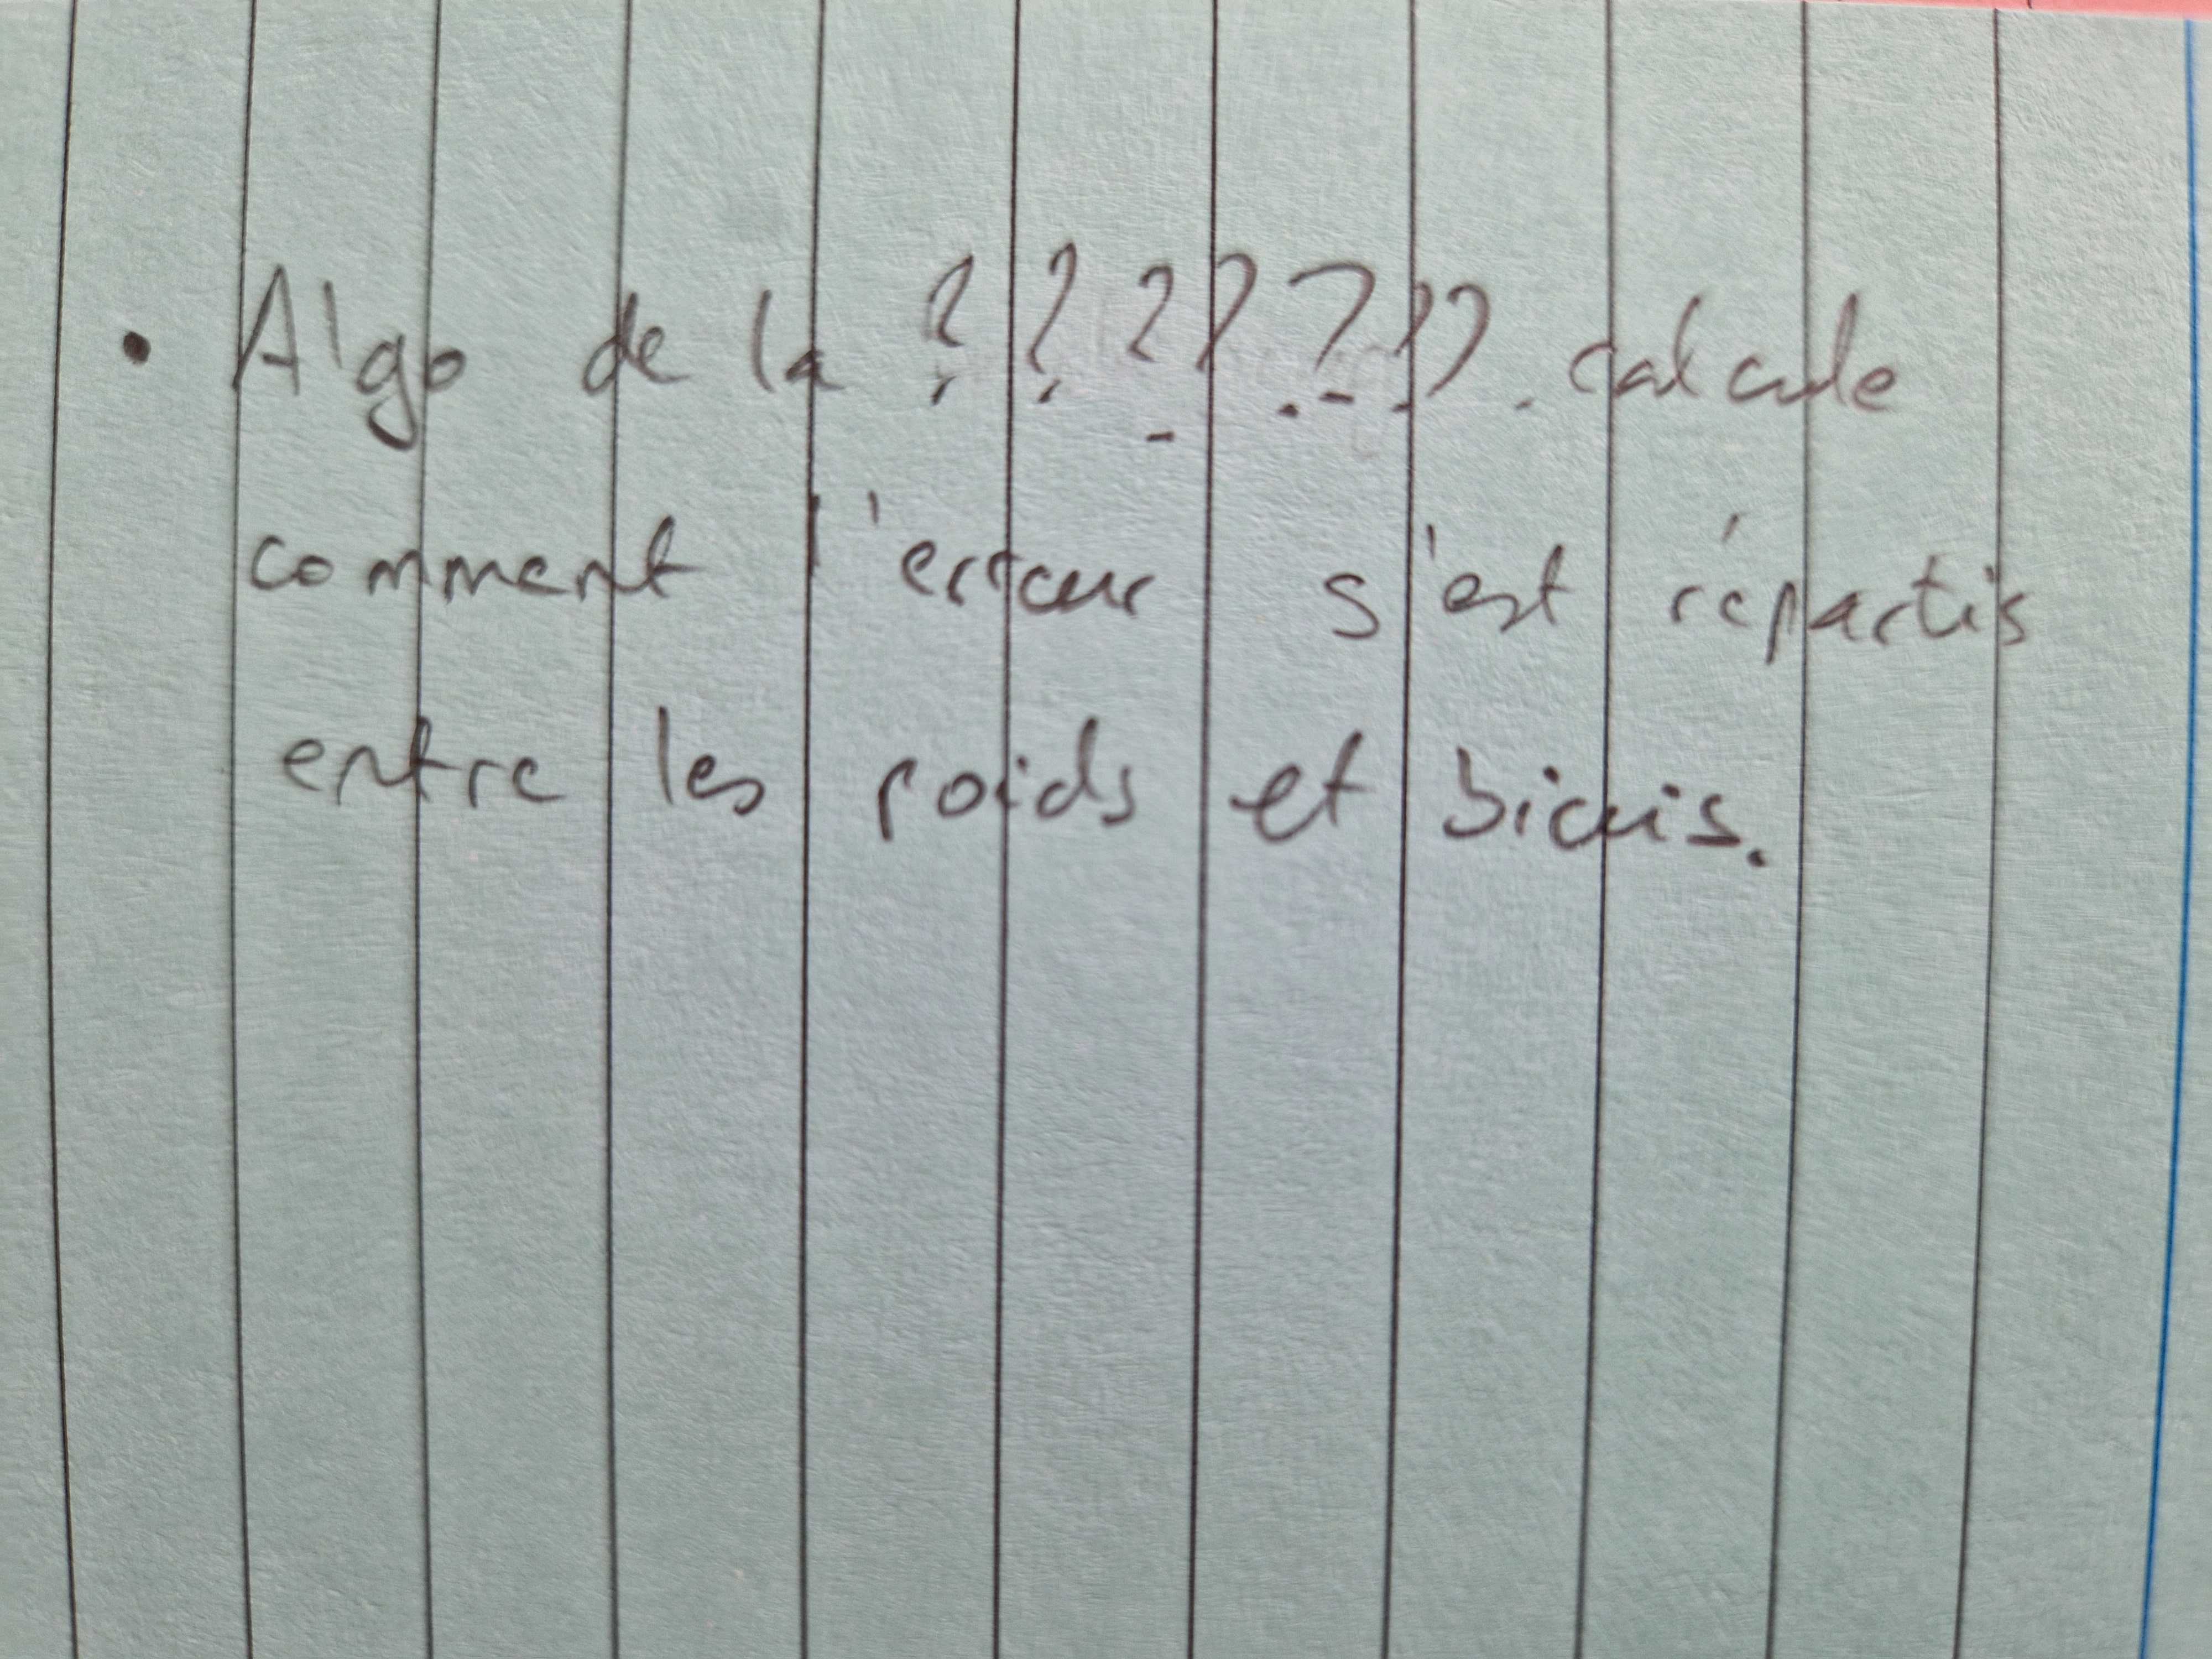 • Algo de la ? ? ? ? ? ? ? . calcule
comment l'erreur s'est répartis
entre les poids et biais.